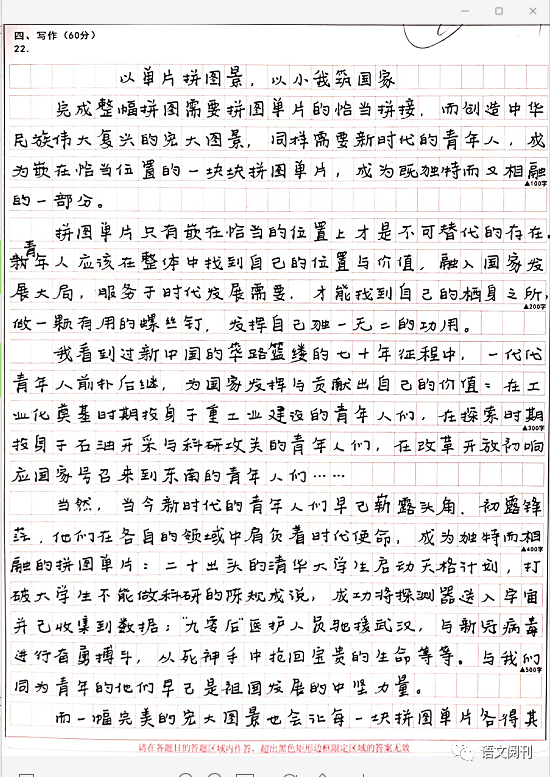 四、写作（60分）
22.
以单片拼图景，以小我筑国家
完成整幅拼图需要拼图单片的恰当拼接，而创造中华
民族伟大复兴的宏大图景，同样需要新时代的青年人，成
为嵌在恰当位置的一块块拼图单片，成为既独特而又相融
▲100字
的一部分。
拼图单片只有嵌在恰当的位置上才是不可替代的存在。
青
年人应该在整体中找到自己的位置与价值，融入国家发
展大局，服务于时代发展需要，才能找到自己的栖身之所，
▲200字
做一颗有用的螺丝钉，发挥自己独一无二的功用。
我看到过新中国的筚路蓝缕的七十年征程中，一代代
青年人前扑后继，为国家发挥与贡献出自己的价值：在工
业化奠基时期投身于重工业建设的青年人们，在探索时期
▲300字
投身于石油开采与科研攻关的青年人们，在改革开放初响
应国家号召来到东南的青年人们……
当然，当今新时代的青年人们早已崭露头角，初露锋
芒，他们在各自的领域中肩负着时代使命，成为独特而相
▲400字
融的拼图单片：二十出头的清华大学生启动天格计划，打
破大学生不能做科研的陈规成说，成功将探测器送入宇宙
并已收集到数据；“九零后”医护人员驰援武汉，与新冠病毒
进行奋勇搏斗，从死神手中抢回宝贵的生命等等。与我们
▲500字
同为青年的他们早已是祖国发展的中坚力量。
而一幅完美的宏大图景也会让每一块拼图单片各得其
请在各题目的答题区域内作答，超出黑色矩形边框限定区域的答案无效
语文阅刊